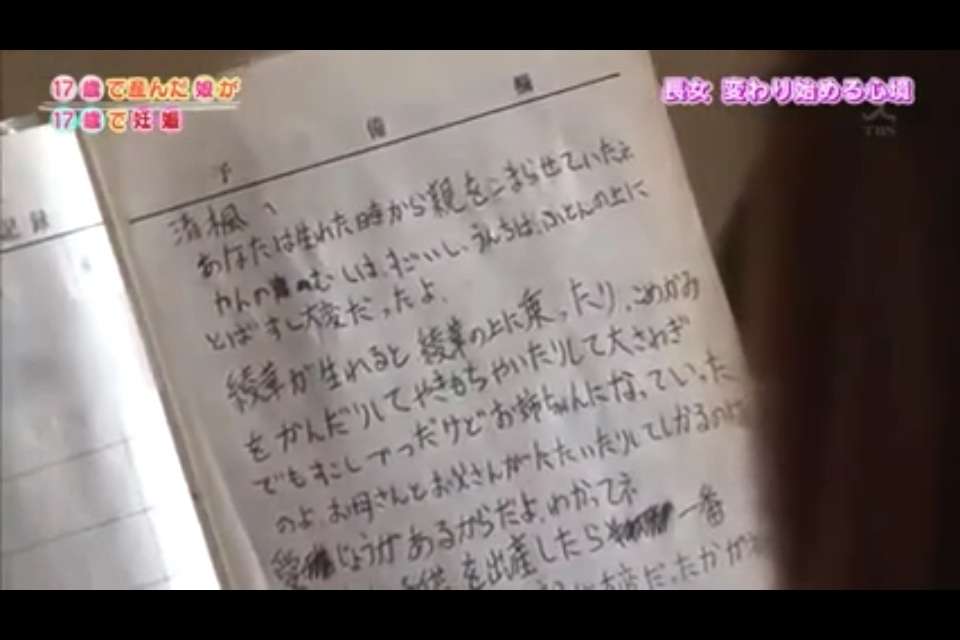 17歳で産んだ娘が
17歳で妊娠
長女 変わり始める心境
TBS
記録
予備欄
清楓、
あなたは生れた時から親をこまらせていたネ
かんのむしは、すごいし、うんちは、ふとんの上に
とばすし大変だったよ。
綾華が生れると綾華の上に乗ったり、こめかみ
をかんだりしてやきもちやいたりして大さわぎ
でもすこしづつだけどお姉ちゃんになっていった
のよ お母さんとお父さんがたたいたりしてしかるのは
愛じょうがあるからだよ、わかってネ
供を出産したら 一番
大変だったか